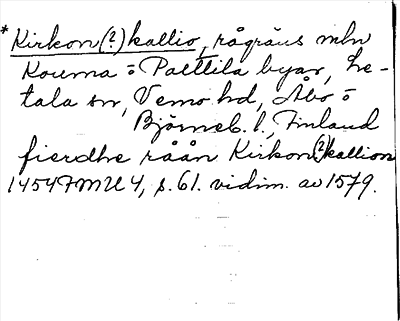 *Kirkon(?)kallio, rågräns mln
Kouma o Palttila byar, Le-
tala sn, Vemo hd, Åbo o
Björneb. l., Finland
fierdhe råån Kirkon(?)kallion
1454 FMU 4, s. 61. vidim. av 1579.